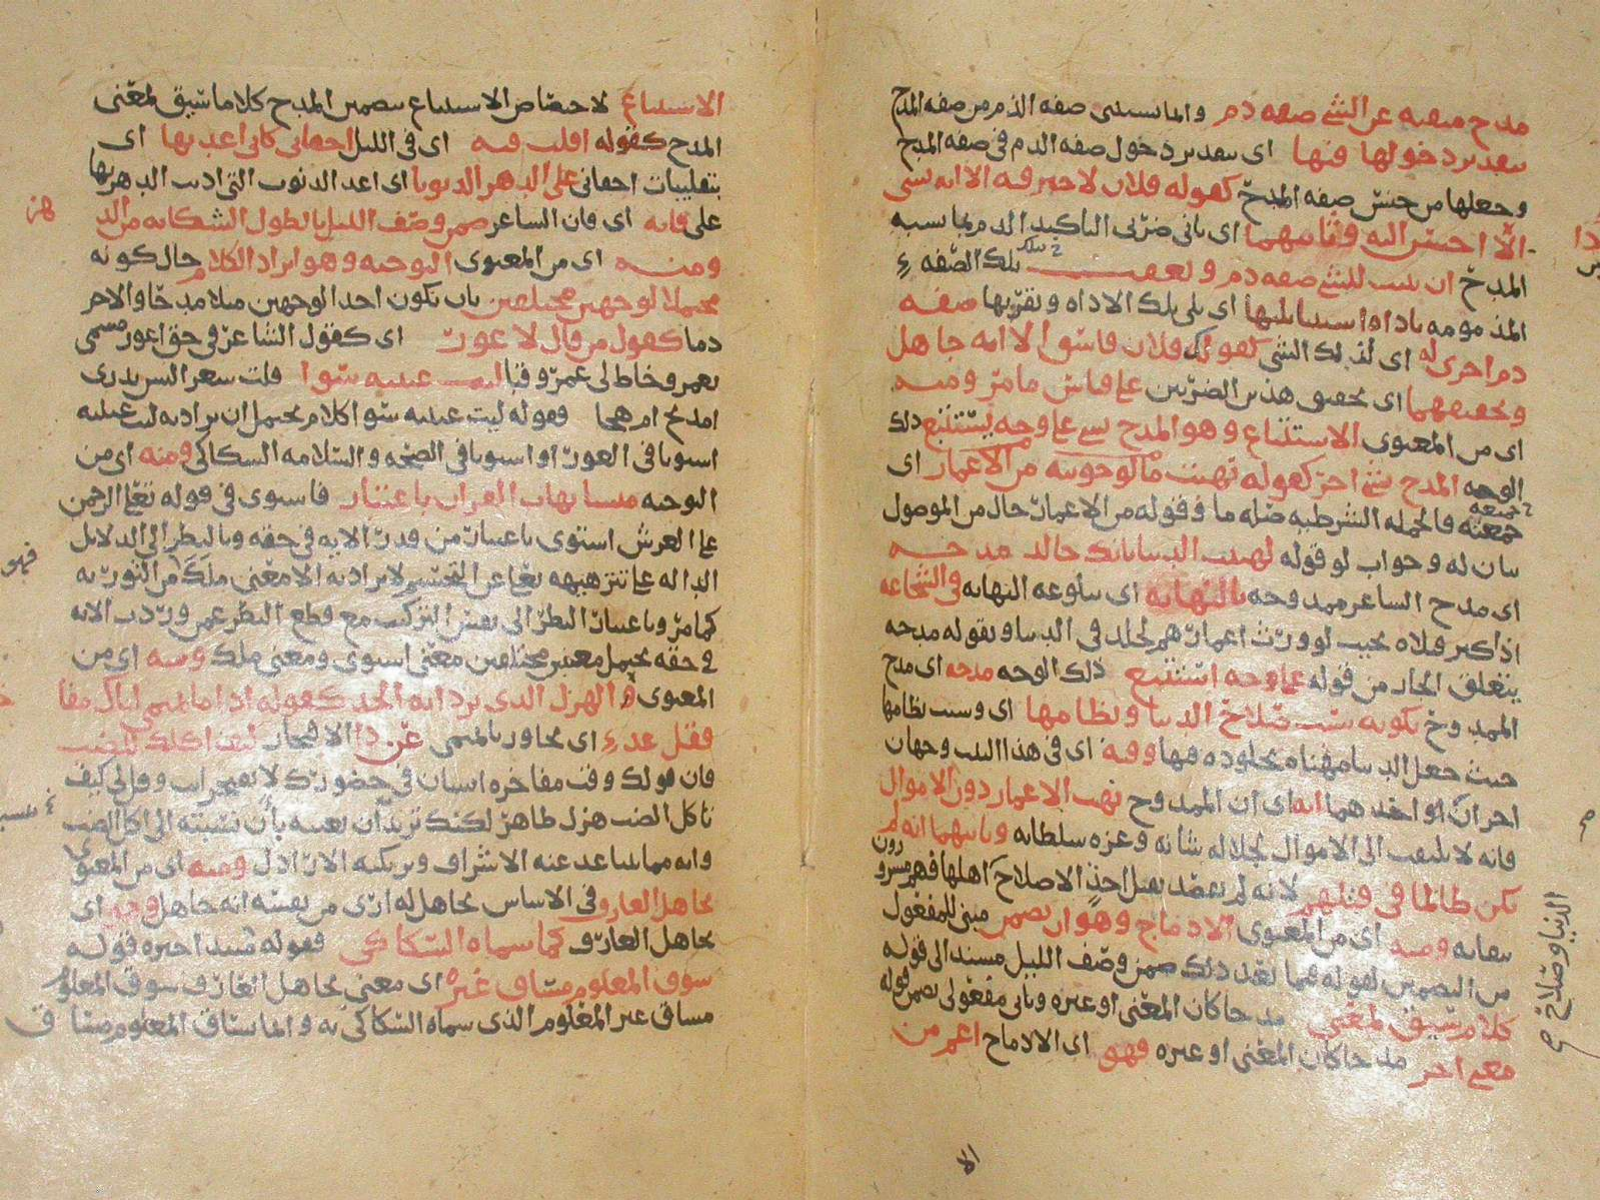 مدح منفيه عن الشئ صفه ذم والثانى يستثنى صفه الذم من صفه المدح
بتقدير دخولها فيها اى بتقدير دخول صفه الذم فى صفه المدح
وجعلها من جنس صفه المدح كقوله فلان لا خير فيه الا انه يسئ
الى احسن اليه وثانيهما اى ثانى ضربى التاكيد الذم بما يشبه
المدح ان يثبت للشئ صفه ذم وتعقب تلك الصفه
المذمومه باداه استثنا يليها اى يلى تلك الاداه وتقربها صفه
ذم اخرى له اى لذلك الشئ كقولك فلان فاسق الا انه جاهل
وتحقيقهما اى تحقيق هذين الضربين على قياس ما مر ومنه
اى من المعنوى الاستتباع وهو المدح بشئ على وجه يستتبع ذلك
الوجه المدح بشئ اخر كقوله نهبت ما لو حويته من الاعمار اى
جمعته فالجمله الشرطيه صله ما وقوله من الاعمار حال من الموصول
بيان له وجواب لو قوله لهنيت الدنيا بانك خالد مدحه
اى مدح الشاعر ممدوحه بالنهايه اى ببلوغه النهايه فى الشجاعه
اذ اكثر قتلاه بحيث لو ورث اعمارهم لخلد فى الدنيا وبقوله مدحه
يتعلق الجار من قوله على وجه استتبع ذلك الوجه مدحه اى مدح
الممدوح بكونه سبب صلاح الدنيا ونظامها اى وسبب نظامها
حيث جعل الدنيا مهناه بخلوده فيها وفيه اى فى هذا البيت وجهان
اخران او احدهما انه اى ان الممدوح نهب الاعمار دون الاموال
فانه لا يلتفت الى الاموال لجلاله شانه وعزه سلطانه وثانيهما انه لم
يكن ظالما فى قتلهم لانه لم يقصد بقتل احد الا صلاح اهلها فهم مسرورون
ببقائه ومنه اى من المعنوى الادماج وهو ان يضمن مبنى للمفعول
من التضمين لقوله فيما بعد ذلك ضمن وصف الليل مسند الى قوله
كلام سيق لمعنى مدحا كان المعنى او غيره وثانى مفعولى يضمن قوله
معنى اخر مدحا كان المعنى او غيره فهو اى الادماج اعم من
الدنيا وصلاح
الا
الاستتباع لاختصاص الاستتباع بتضمين المدح كلاما سيق لمعنى
المدح كقوله اقلب فيه اى فى الليل اجفانى كانى اعد بها اى
بتقليبات اجفانى على الدهر الذنوبا اى اعد الذنوب التى اذنب الدهر بها
على فانه اى فان الشاعر ضمن وصف الليل بالطول الشكايه من الدهر
ومنه اى من المعنوى التوجيه وهو ايراد الكلام حال كونه
محتملا لوجهين مختلفين بان يكون احد الوجهين مثلا مدحا والاخر
ذما كقول من قال لاعور اى كقول الشاعر فى حق اعور مسمى
بعمرو خاط لى عمرو قبا ليت عينيه سوا قلت شعرا ليس يدرى
امديح ام هجا فقوله ليت عينيه سوا كلام يحتمل ان يراد به ليت عينيه
استويا فى العور او استويا فى الصحه والسلامه السكاكى ومنه اى من
التوجيه متشابهات القران باعتبار فاستوى فى قوله تعالى الرحمن
على العرش استوى باعتبار من قدر الايه فى حقه وبالنظر الى الدلايل
الداله على تنزهيهه تعالى عن التجسيم لا يراد به الا معنى ملك من التوريه
كما مر وباعتبار النظر الى نفس التركيب مع قطع النظر عمن وردت الايه
فى حقه يحتمل معنيين مختلفين معنى استوى ومعنى ملك ومنه اى من
المعنوى الهزل الذى يراد به الجد كقوله اذا ما تميمى اتاك مفا
فقل عد اى تجاوز يا تميمى عن ذا الافتخار كيف اكلك للضب
فان قولك وقت مفاخره انسان فى حضورك لا تفتخر انت وقل لى كيف
تاكل الضب هزل ظاهر لكنك تريد ان تعيبه بان تنسبه الى اكل الضب
وانه مما يتباعد عنه الاشراف ويرتكبه الاراذل ومنه اى من المعنوى
تجاهل العارف فى الاساس تجاهل له ارى من نفسه انه جاهل وجه اى
تجاهل العارف كما سماه السكاكى فقوله مبتدا خبره قوله
سوق المعلوم مساق غيره اى معنى تجاهل العارف سوق المعلوم
مساق غير المعلوم الذى سماه السكاكى به وانما ساق المعلوم مساق